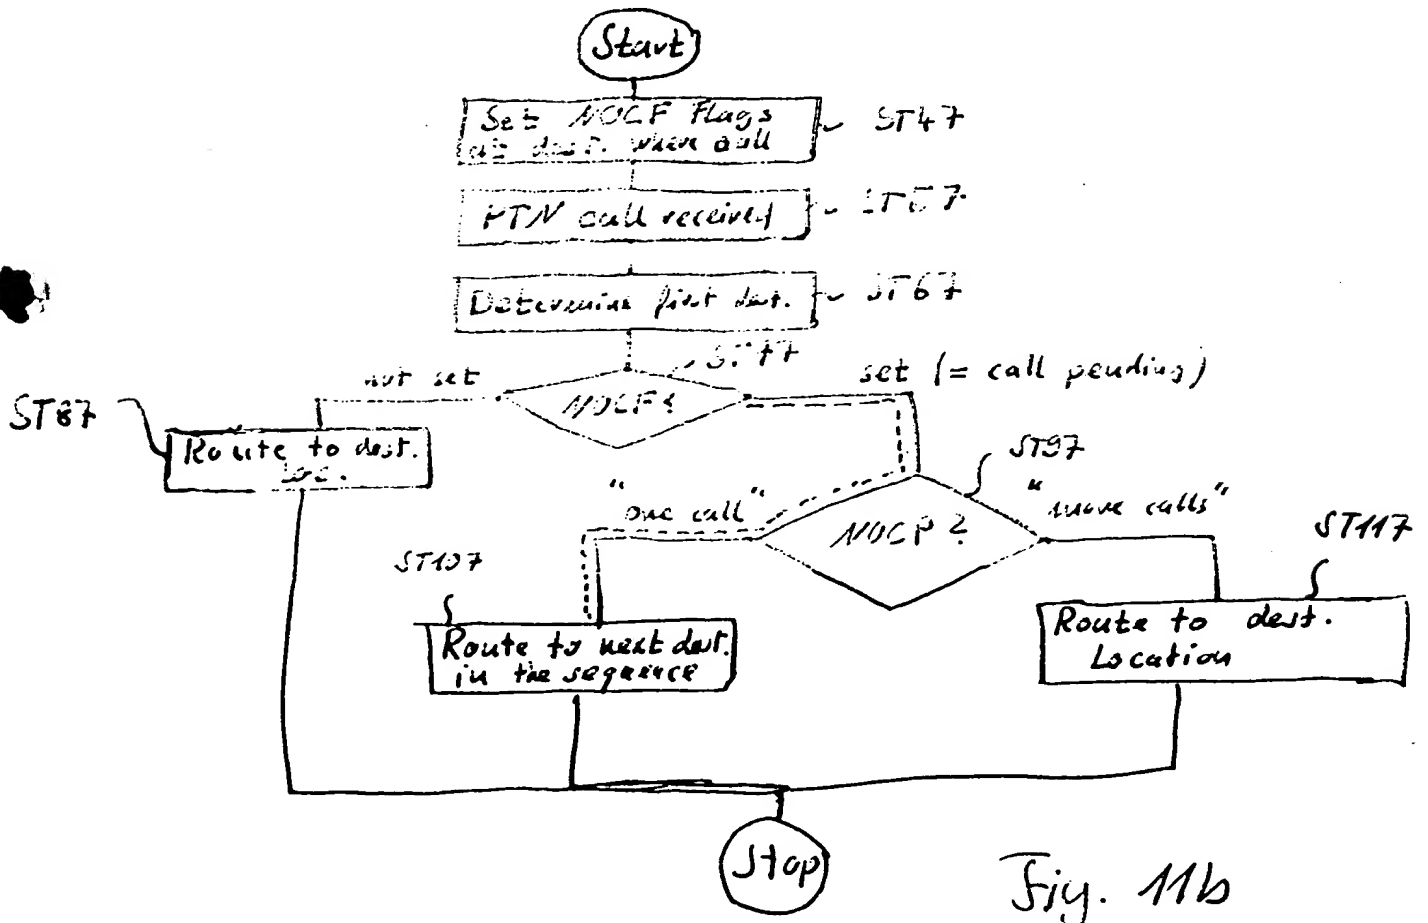 Start
Set NOCF Flags
at dest. where call
ST47
PTN call received
ST57
Determine first dest.
ST67
ST77
not set
NOCF?
set (= call pending)
ST87
Route to dest.
loc.
ST97
"one call"
NOCP?
"more calls"
ST117
ST107
Route to next dest.
in the sequence
Route to dest.
Location
Stop
Fig. 11b